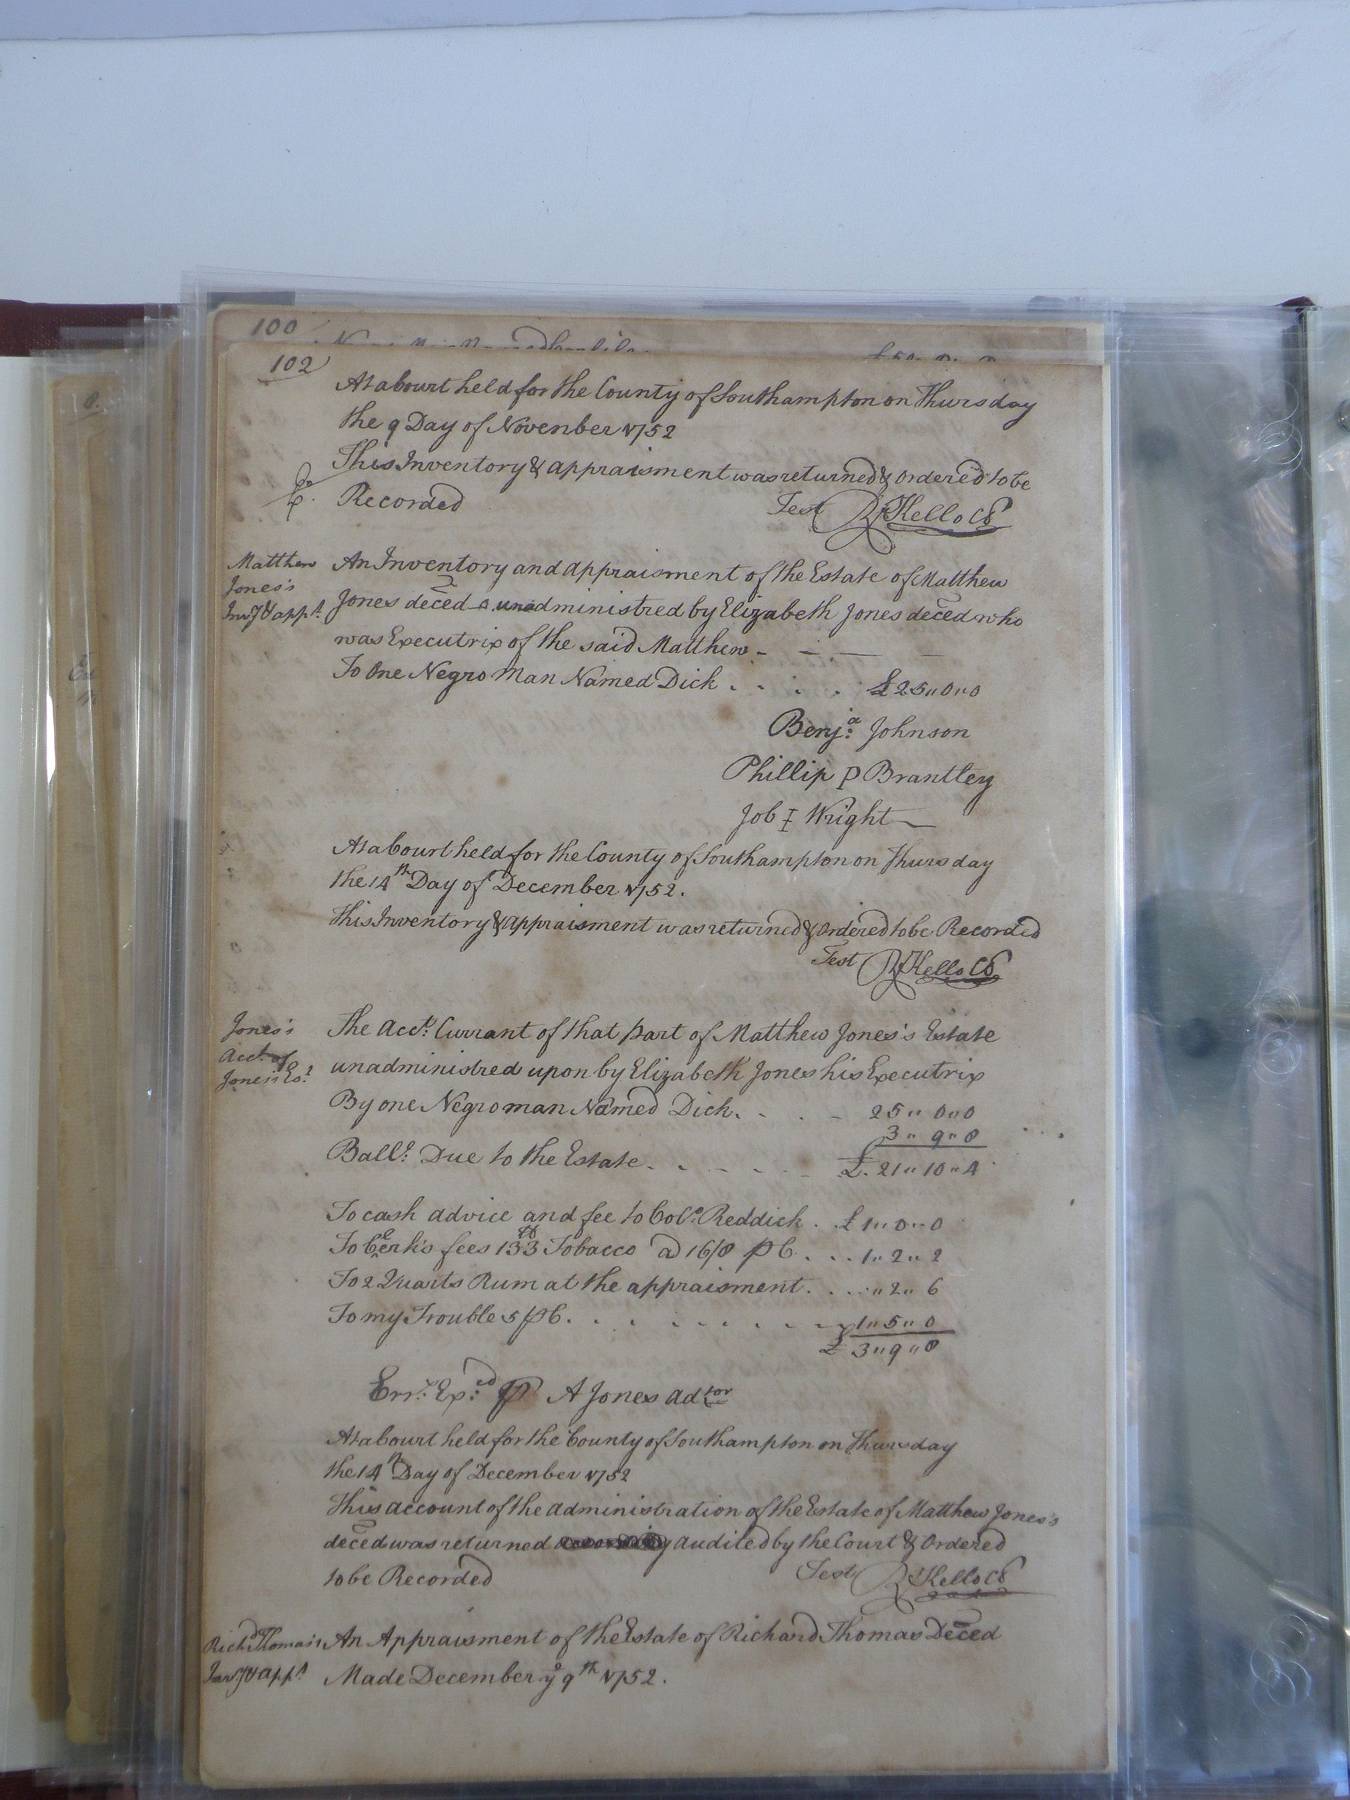 100
102
At a Court held for the County of Southampton on Thursday
the 9 Day of November 1752
This Inventory & appraisment was returned & ordered to be
Recorded Test R Kello CC
Matthew
Jones's
Invy & appt
An Inventory and appraisment of the Estate of Matthew
Jones deced unadministred by Elizabeth Jones deced who
was Executrix of the said Matthew - - - -
To One Negro Man Named Dick . . . . £25"0"0
Benja: Johnson
Phillip P Brantley
Job I Wright
At a Court held for the County of Southampton on Thursday
the 14th Day of December 1752.
This Inventory & appraisment was returned & Ordered to be Recorded
Test R Kello CC
Jones's
acct of
Jones's Est
The acct: Currant of that part of Matthew Jones's Estate
unadministred upon by Elizabeth Jones his Executrix
By one Negro man Named Dick. - . - 25"0"0
3"9"8
Balle: Due to the Estate. - - - - £.21"10"4
To cash advice and fee to Colo: Reddick . £1"0"0
To Clerk's fees 133 lb Tobacco a 16/8 p C. . . 1"2"2
To 2 Quarts Rum at the appraisment. . . . "2"6
To my Trouble 5 p C. . . . . . . 1"5"0
£3"9"8
Errs: Exd: p A Jones adtor
At a Court held for the County of Southampton on Thursday
the 14th Day of December 1752
This account of the administration of the Estate of Matthew Jones's
deced was returned audited by the Court & Ordered
to be Recorded Test R Kello CC
Richd Thomas's
Invy & appt
An Appraisment of the Estate of Richard Thomas Deced
Made December ye 9th 1752.